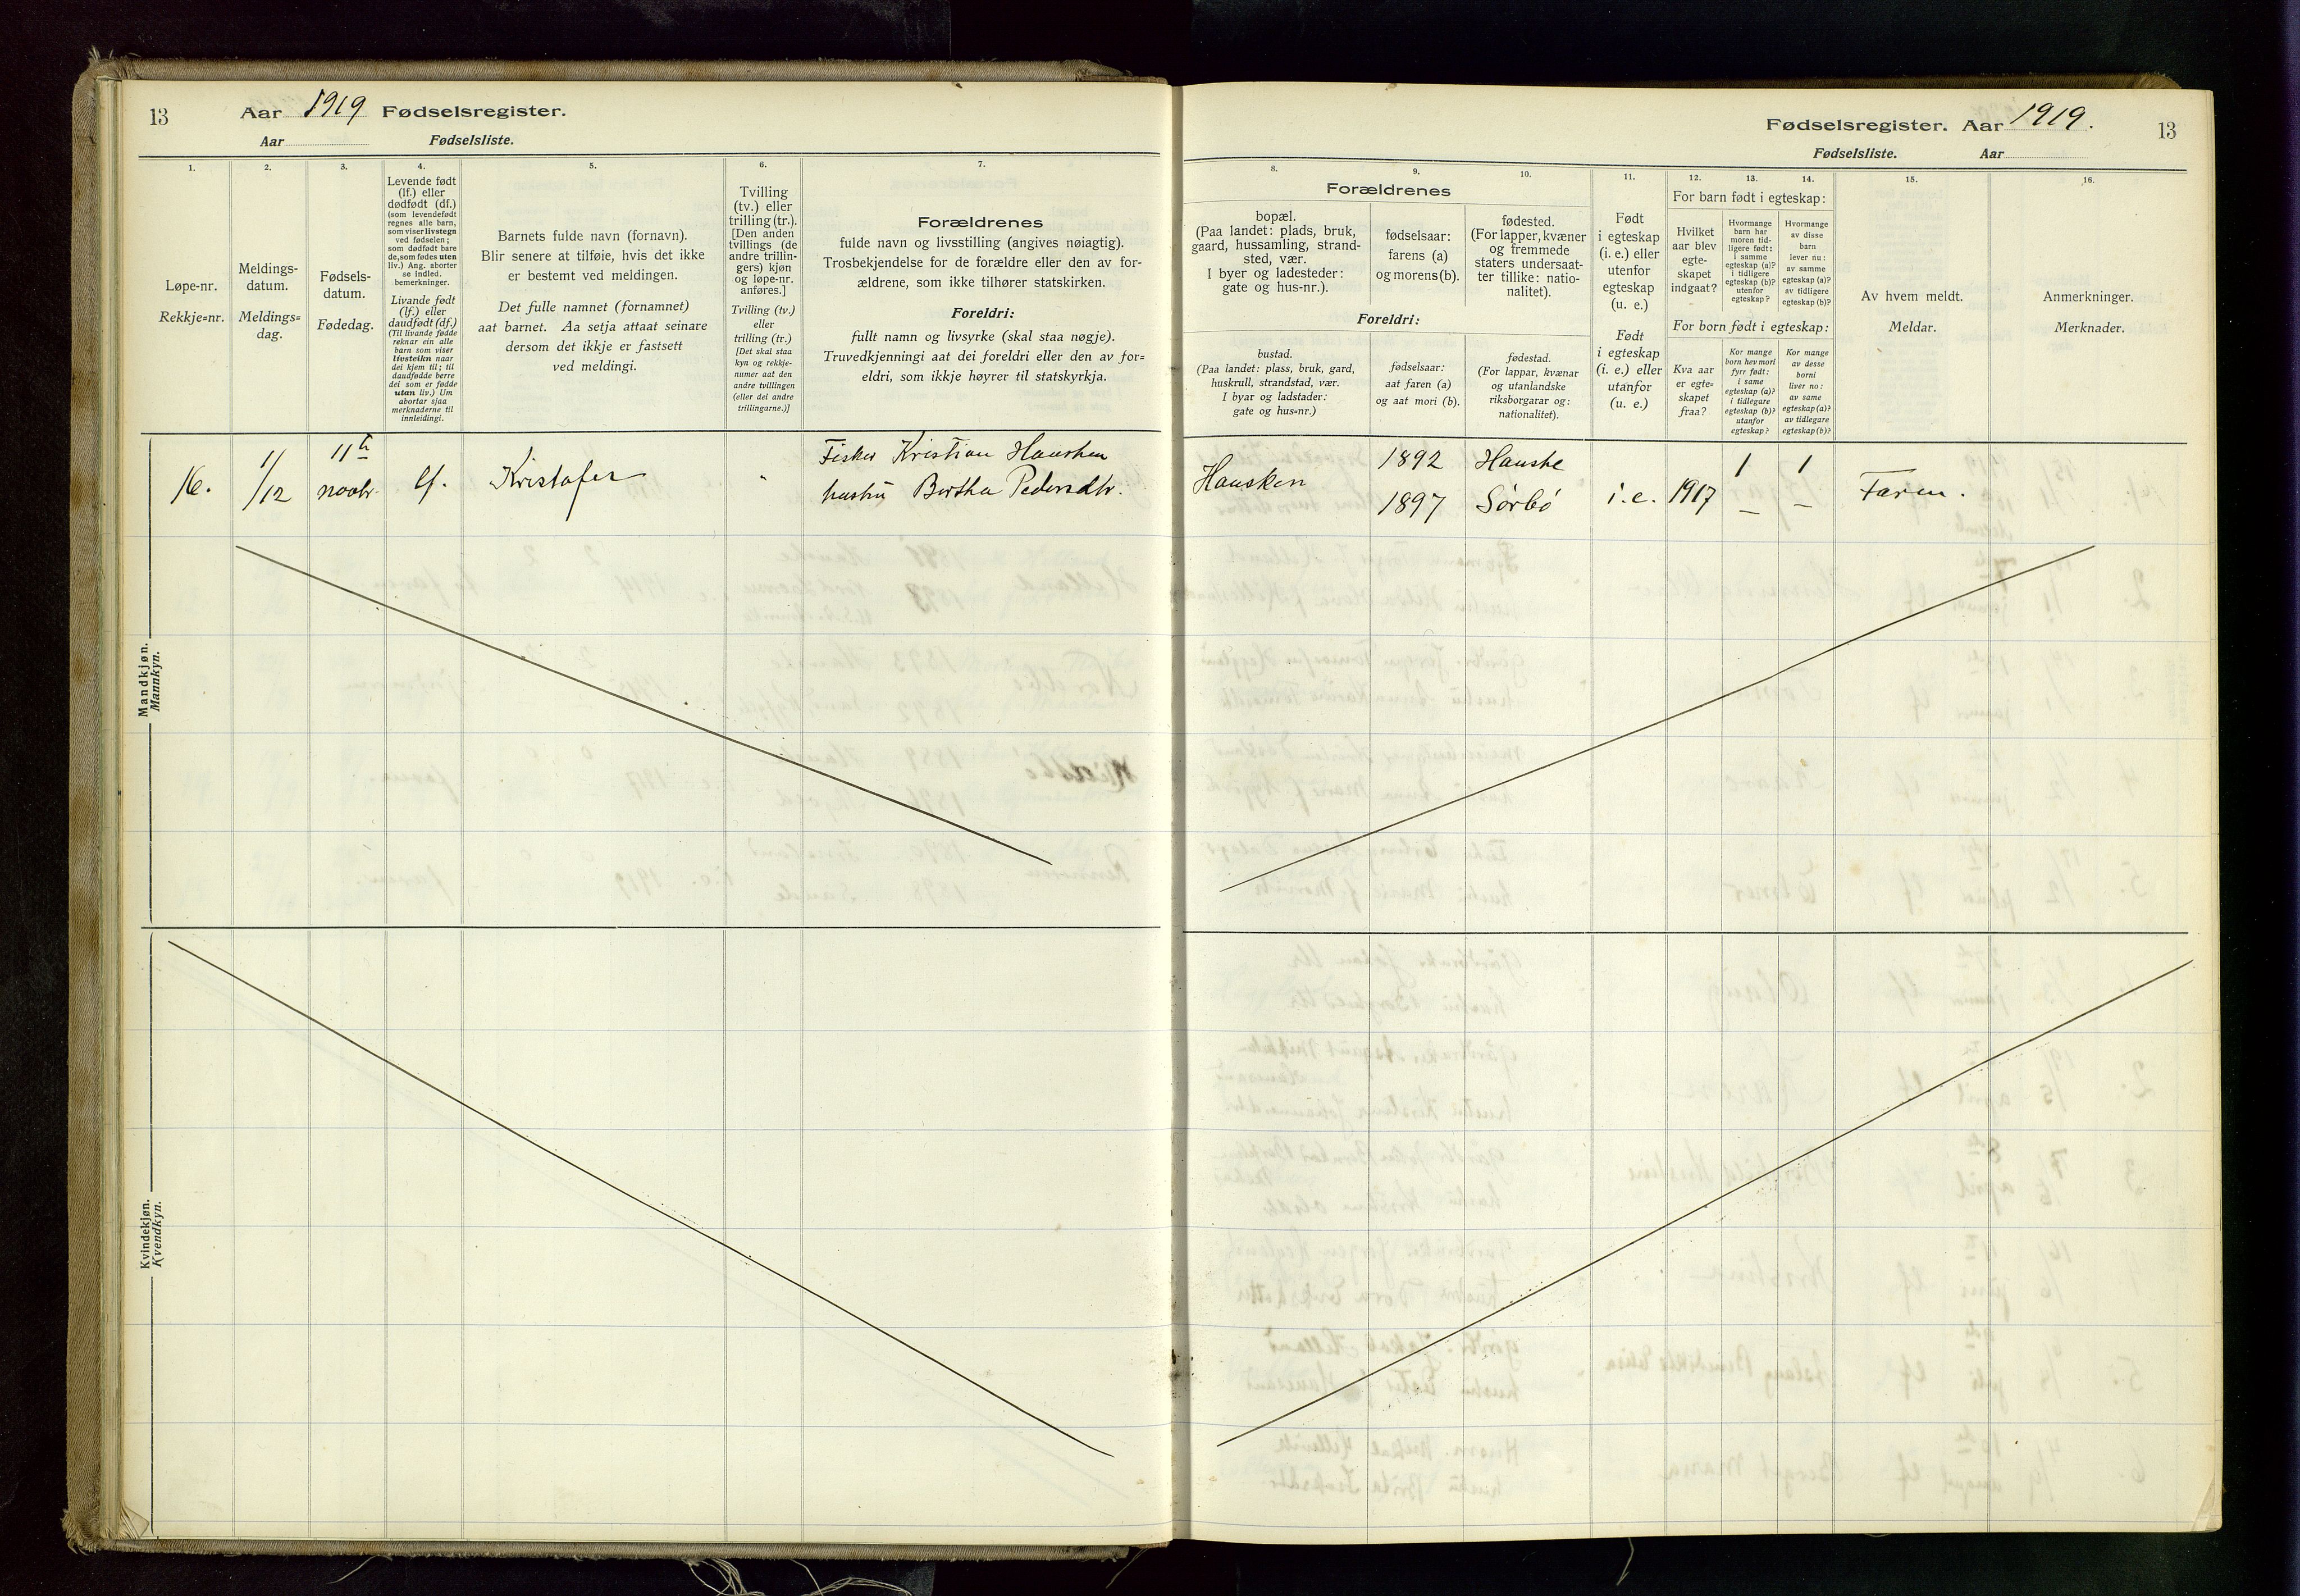 13 Aar 1919 Fødselsregister.
Aar Fødselsliste.
1.
Løpe-nr.
Rekkje=nr.
2.
Meldings-
datum.
Meldings=
dag.
3.
Fødsels-
datum.
Fødedag.
4.
Levende født
(lf.) eller
dødfødt (df.)
(som levendefødt
regnes alle barn,
som viser livstegn
ved fødselen;
som dødfødt bare
de, som fødes uten
liv.) Ang. aborter
se indled.
bemerkninger.
Livande født
(lf.) eller
daudfødt (df.)
(Til livande fødde
reknar ein alle
barn som viser
livsteikn naar
dei kjem til; til
daudfødde berre
dei som er fødde
utan liv.) Um
abortar sjaa
merknaderne til
innleidingi.
5.
Barnets fulde navn (fornavn).
Blir senere at tilføie, hvis det ikke
er bestemt ved meldingen.
Det fulle namnet (fornamnet)
aat barnet. Aa setja attaat seinare
dersom det ikkje er fastsett
ved meldingi.
6.
Tvilling
(tv.) eller
trilling (tr.).
[Den anden
tvillings (de
andre trillin-
gers) kjøn
og løpe-nr.
anføres.]
Tvilling (tv.)
eller
trilling (tr.)
[Det skal staa
kyn og rekkje-
numer aat den
andre tvillingen
(eller dei andre
trillingarne.)]
7.
Forældrenes
fulde navn og livsstilling (angives nøiagtig).
Trosbekjendelse for de forældre eller den av for-
ældrene, som ikke tilhører statskirken.
Foreldri:
fullt namn og livsyrke (skal staa nøgje).
Truvedkjenningi aat dei foreldri eller den av for=
eldri, som ikkje høyrer til statskyrkja.
Mandkjøn.
Mannkyn.
16. 1/12 11te novbr. lf. Kristofer "
Fisker Kristian Hausken
hustru Bertha Pedersdtr.
Kvindekjøn.
Kvendkyn.
Fødselsregister. Aar 1919. 13
Fødselsliste. Aar
8.
Forældrenes
bopæl.
(Paa landet: plads, bruk,
gaard, hussamling, strand-
sted, vær.
I byer og ladesteder:
gate og hus-nr.).
Foreldri:
bustad.
(Paa landet: plass, bruk, gard,
huskrull, strandstad, vær.
I byar og ladstader:
gate og hus=nr.)
9.
fødselsaar:
farens (a)
og morens (b).
fødselsaar:
aat faren (a)
og aat mori (b).
10.
fødested.
(For lapper, kvæner
og fremmede
staters undersaat-
ter tillike: natio-
nalitet).
fødestad.
(For lappar, kvænar
og utanlandske
riksborgarar og:
nationalitet).
11.
Født
i egteskap
(i. e.) eller
utenfor
egteskap
(u. e.)
Født
i egteskap
(i. e.) eller
utanfor
(u. e.)
12. 13. 14.
For barn født i egteskap:
Hvilket
aar blev
egte-
skapet
indgaat?
Hvormange
barn har
moren tid-
ligere født:
i samme
egteskap (a)?
i tidligere
egteskap (b)?
utenfor
egteskap?
Hvormange
av disse
barn
lever nu:
av samme
egteskap (a)?
av tidligere
egteskap (b)?
For born født i egteskap:
Kva aar
er egte=
skapet
fraa?
Kor mange
born hev mori
fyrr født:
i same
egteskap (a)?
i tidlegare
egteskap (b)?
utanfor
egteskap?
Kor mange
av desse
borni
liver no:
av same
egteskap (a)?
av tidlegare
egteskap (b)?
15.
Av hvem meldt.
Meldar.
16.
Anmerkninger.
Merknader.
Hausken 1892 Hauske i.e. 1917 1 1 Faren.
1897 Sørbö – –